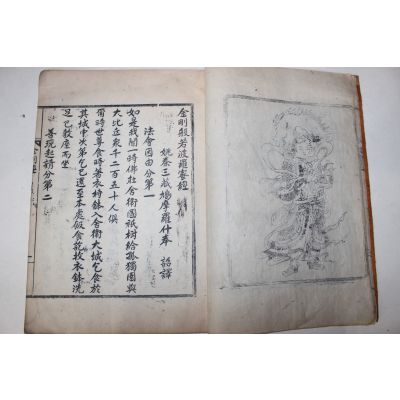 金剛般若波羅蜜經
姚秦三藏鳩摩羅什奉 詔譯
法會因由分第一
如是我聞一時佛在舍衛國祇樹給孤獨園與
大比丘衆千二百五十人俱
爾時世尊食時著衣持鉢入舍衛大城乞食於
其城中次第乞已還至本處飯食訖收衣鉢洗
足已敷座而坐
善現起請分第二